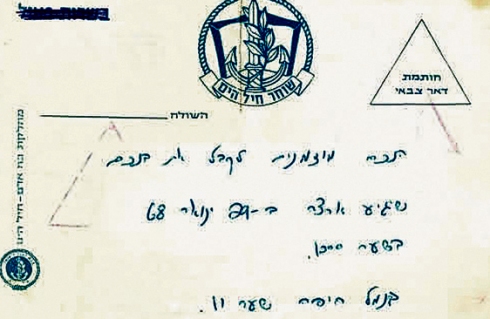 שוחר חיל הים
חותמת
דאר צבאי
השולח
מחלקת כח אדם-חיל הים
הנכם מוזמנים לקבל את בנכם
שיגיע ארצה ב-29 ינואר 68
בשעה
בנמל חיפה שער 11.